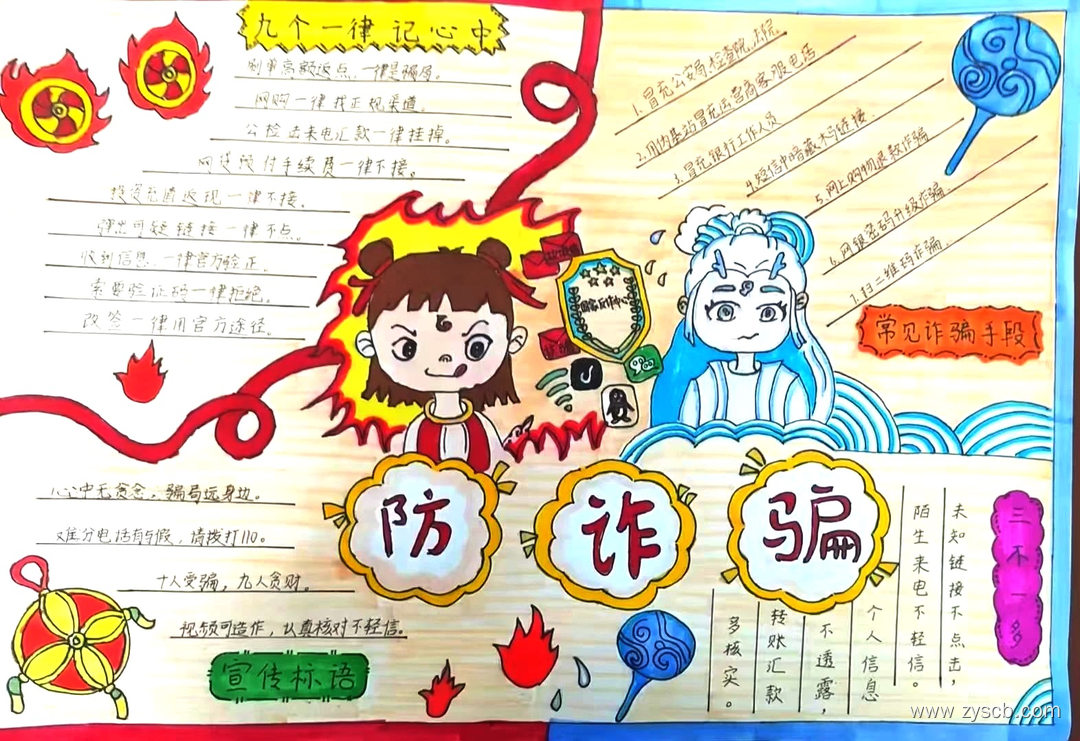 九个一律 记心中
刷单高额返点，一律是骗局。
网购一律找正规渠道。
公检法来电汇款一律挂掉。
网贷预付手续费一律不接。
投资充值返现一律不接。
弹出可疑链接一律不点。
收到信息，一律官方验证。
索要验证码一律拒绝。
改签一律用官方途径。
1. 冒充公安局、检查院、法院。
2. 用伪基站冒充运营商客服电话
3. 冒充银行工作人员
4. 短信中暗藏木马链接.
5. 网上购物退款诈骗
6. 网银密码升级诈骗.
7. 扫二维码诈骗.
常见诈骗手段
国家反诈中心
防 诈 骗
心中无贪念，骗局远身边。
难分电话真与假，请拨打110。
十人受骗，九人贪财.
视频可造作，认真核对不轻信.
宣传标语
三不一多
未知链接不点击，
陌生来电不轻信。
个人信息
不透露，
转账汇款
多核实。
www.zyscb.com